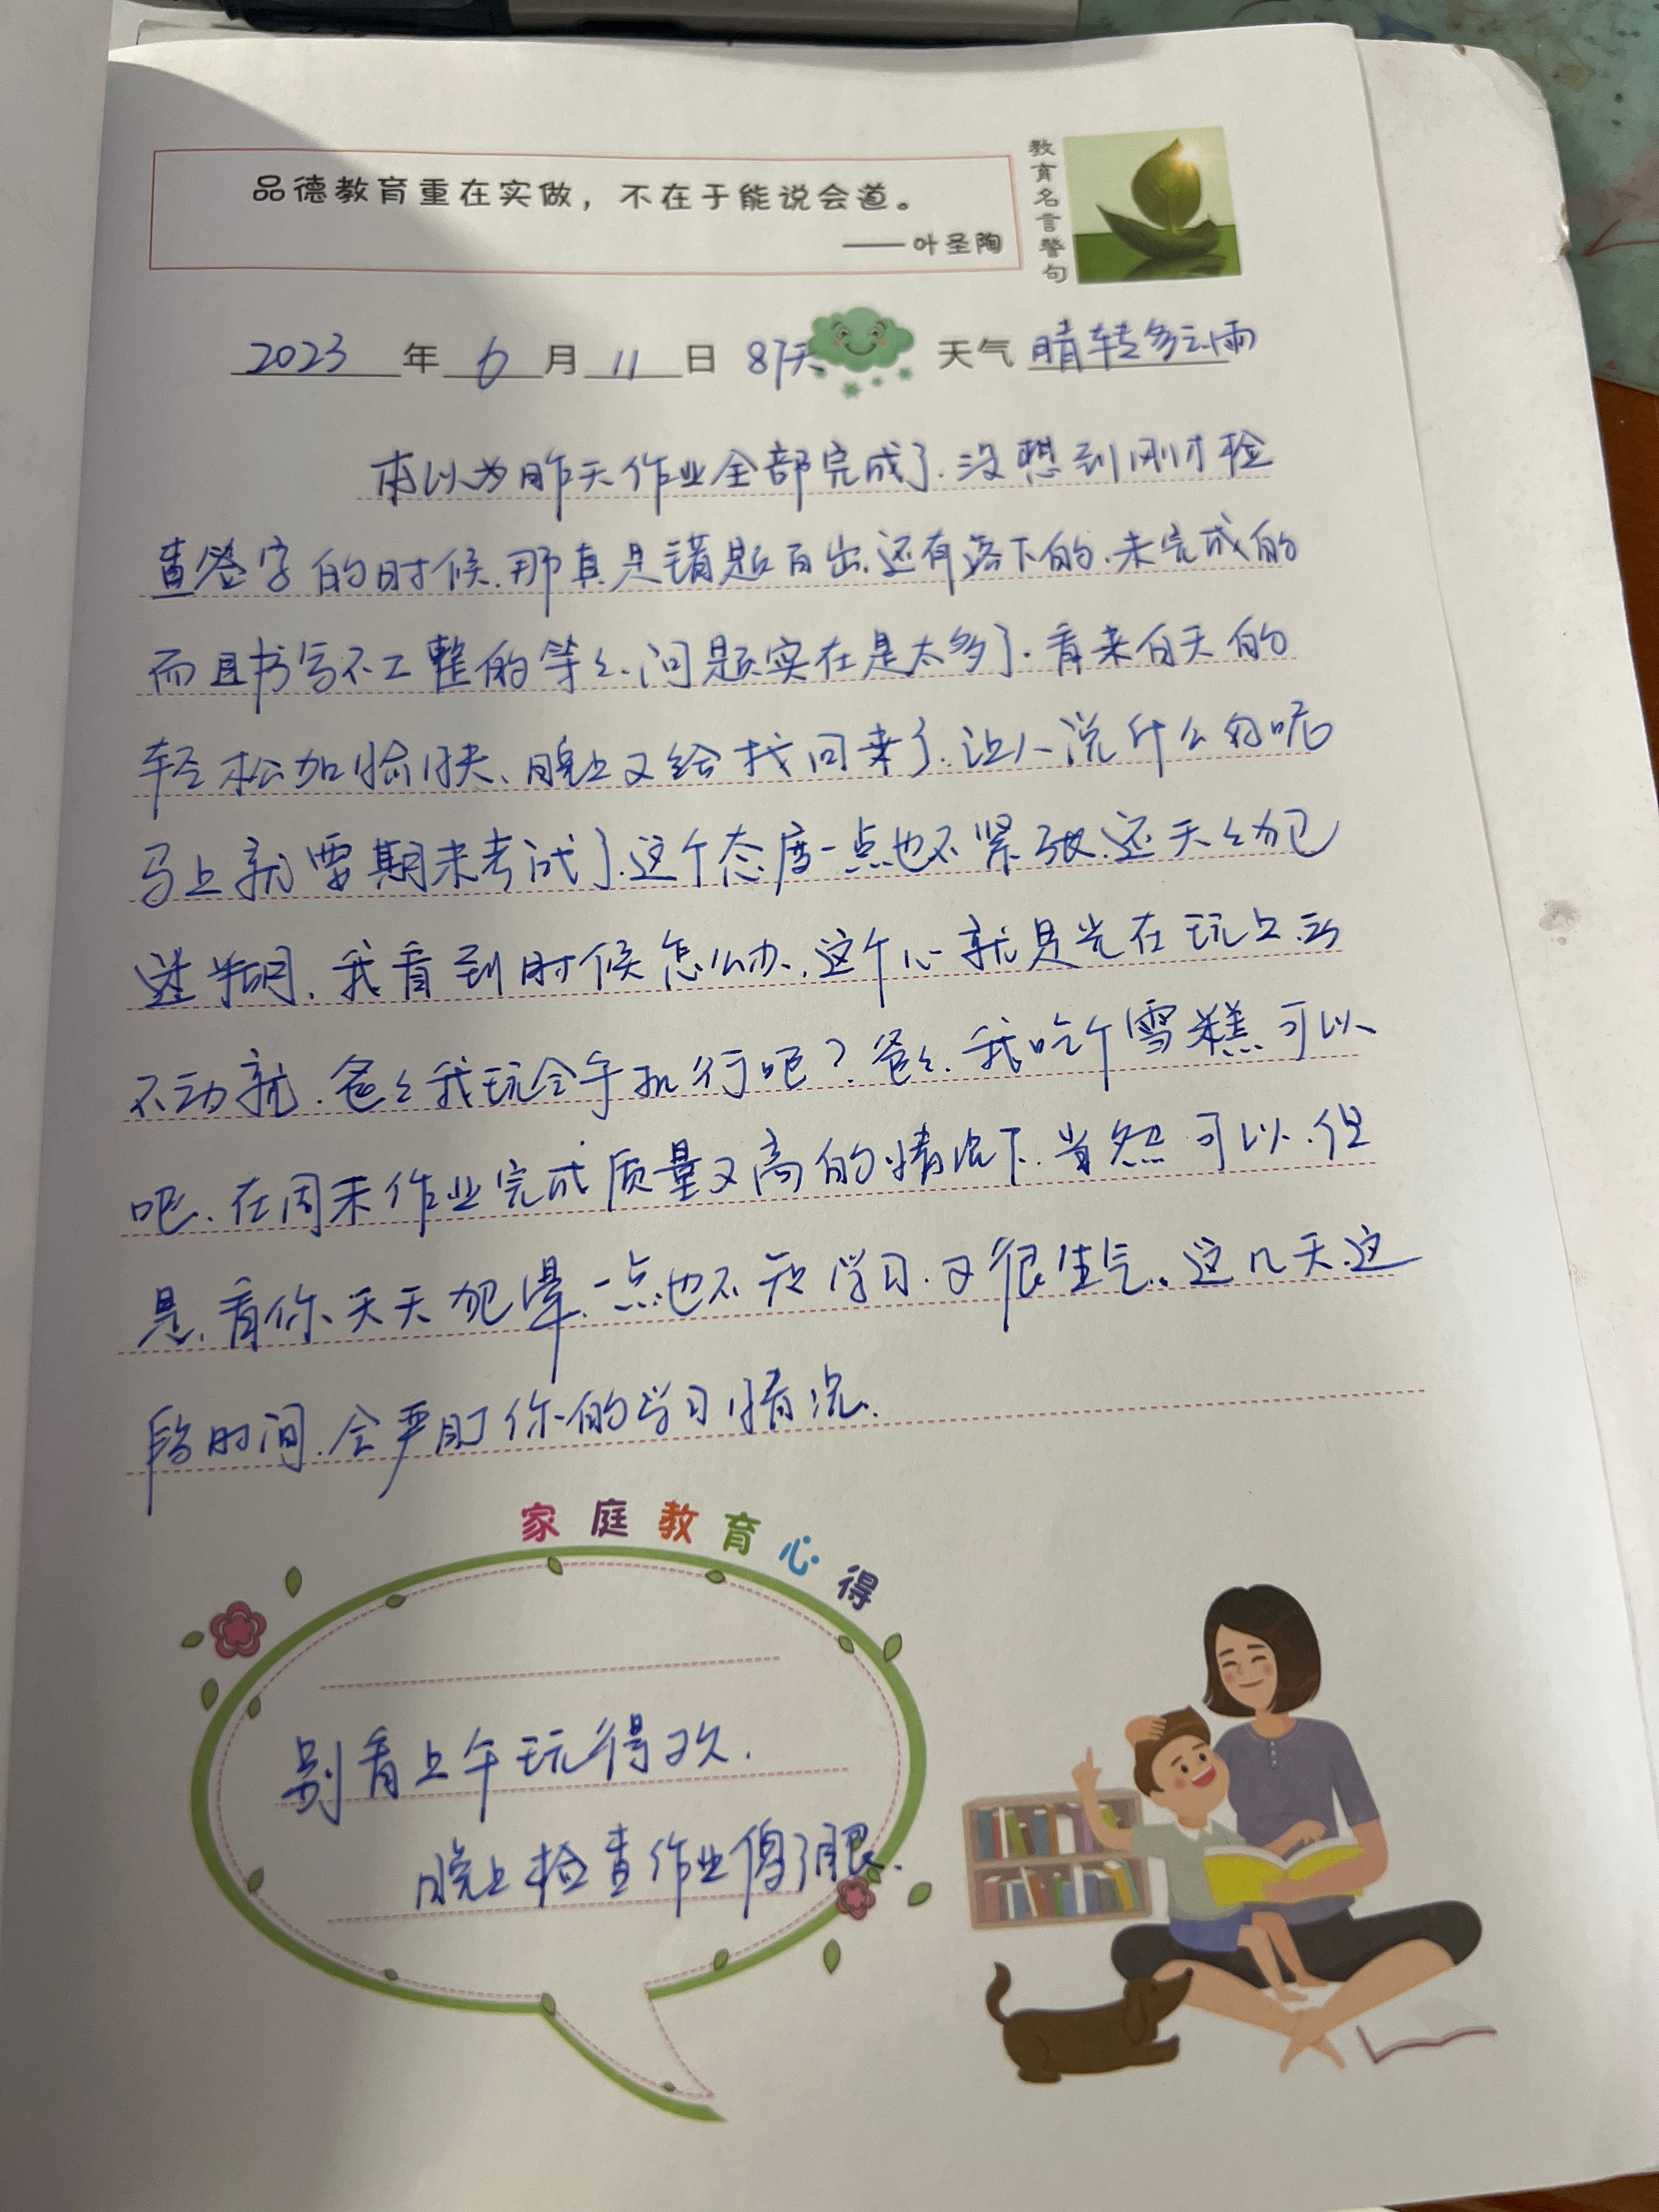 品德教育重在实做，不在于能说会道。
——叶圣陶
教育名言警句
2023年6月11日 87天 天气 晴转多云.雨
本以为昨天作业全部完成了.没想到刚才检
查签字的时候.那真是错题百出.还有落下的.未完成的
而且书写不工整的等々.问题实在是太多了.看来白天的
轻松加愉快、晚上又给找回来了.让人说什么的呢
马上就要期末考试了.这个态度一点也不紧张.还天々犯
迷糊.我看到时候怎么办.这个心就是光在玩上.动
不动就.爸々我玩会手机行吧?爸々.我吃个雪糕可以
吧.在周末作业完成质量又高的情况下.当然可以.但
是.看你天天犯晕.一点也不 学习.又很生气.这几天.这
段时间.会严盯你的学习情况.
家庭教育心得
别看上午玩得欢.
晚上检查作业傻了眼.